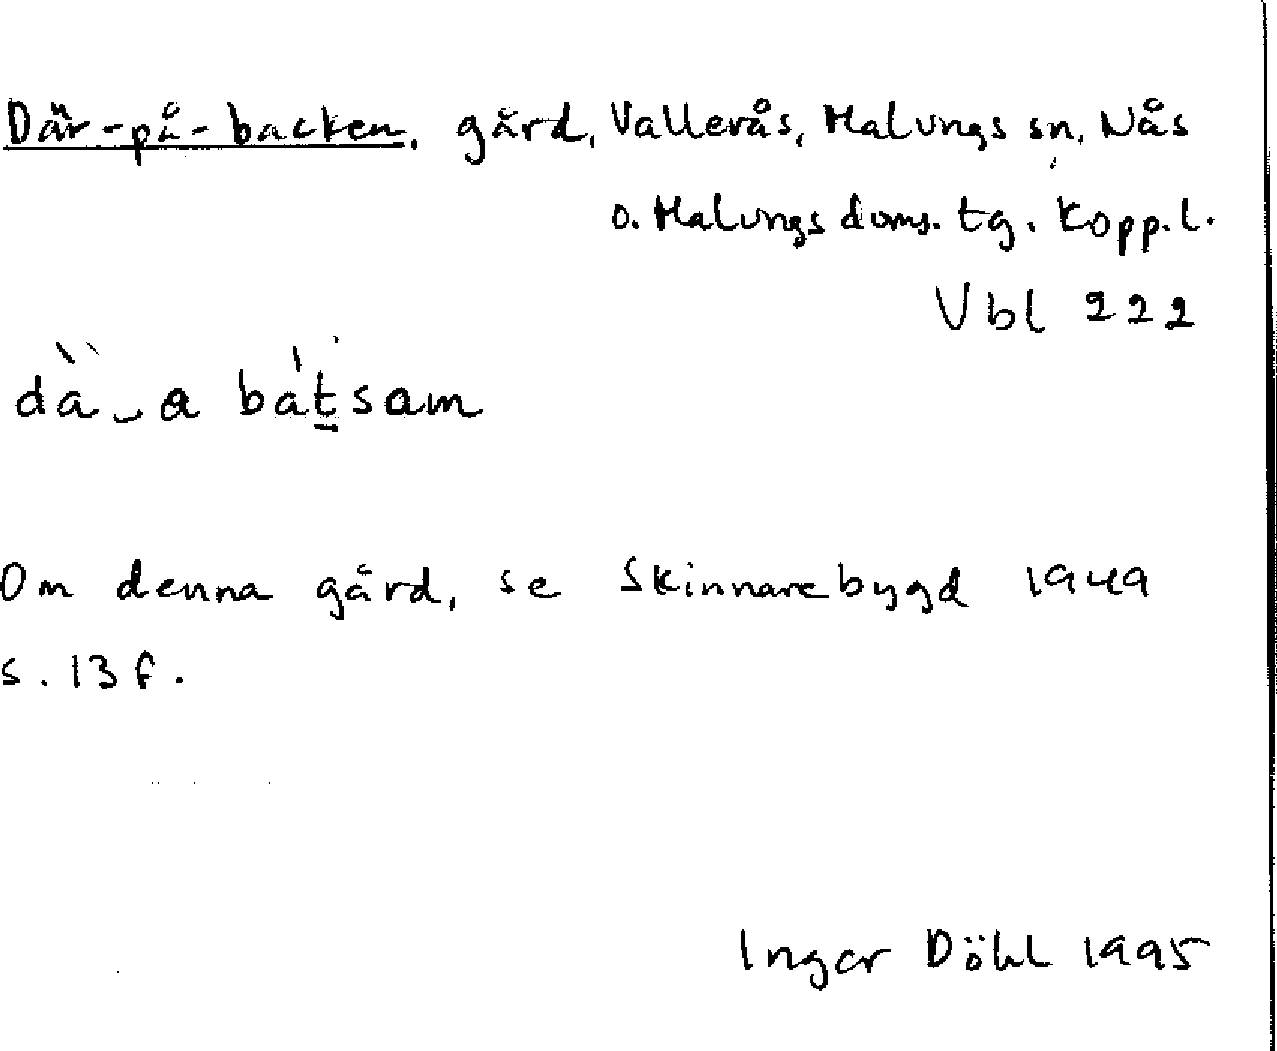 Där-på-backen, gård, Vallerås, Malungs sn, Nås
o. Malungs doms. tg. Kopp. l.
Vbl 222
dà‿a bát̠sam
Om denna gård, se Skinnarebygd 1949
s. 13 f.
Inger Döhl 1995